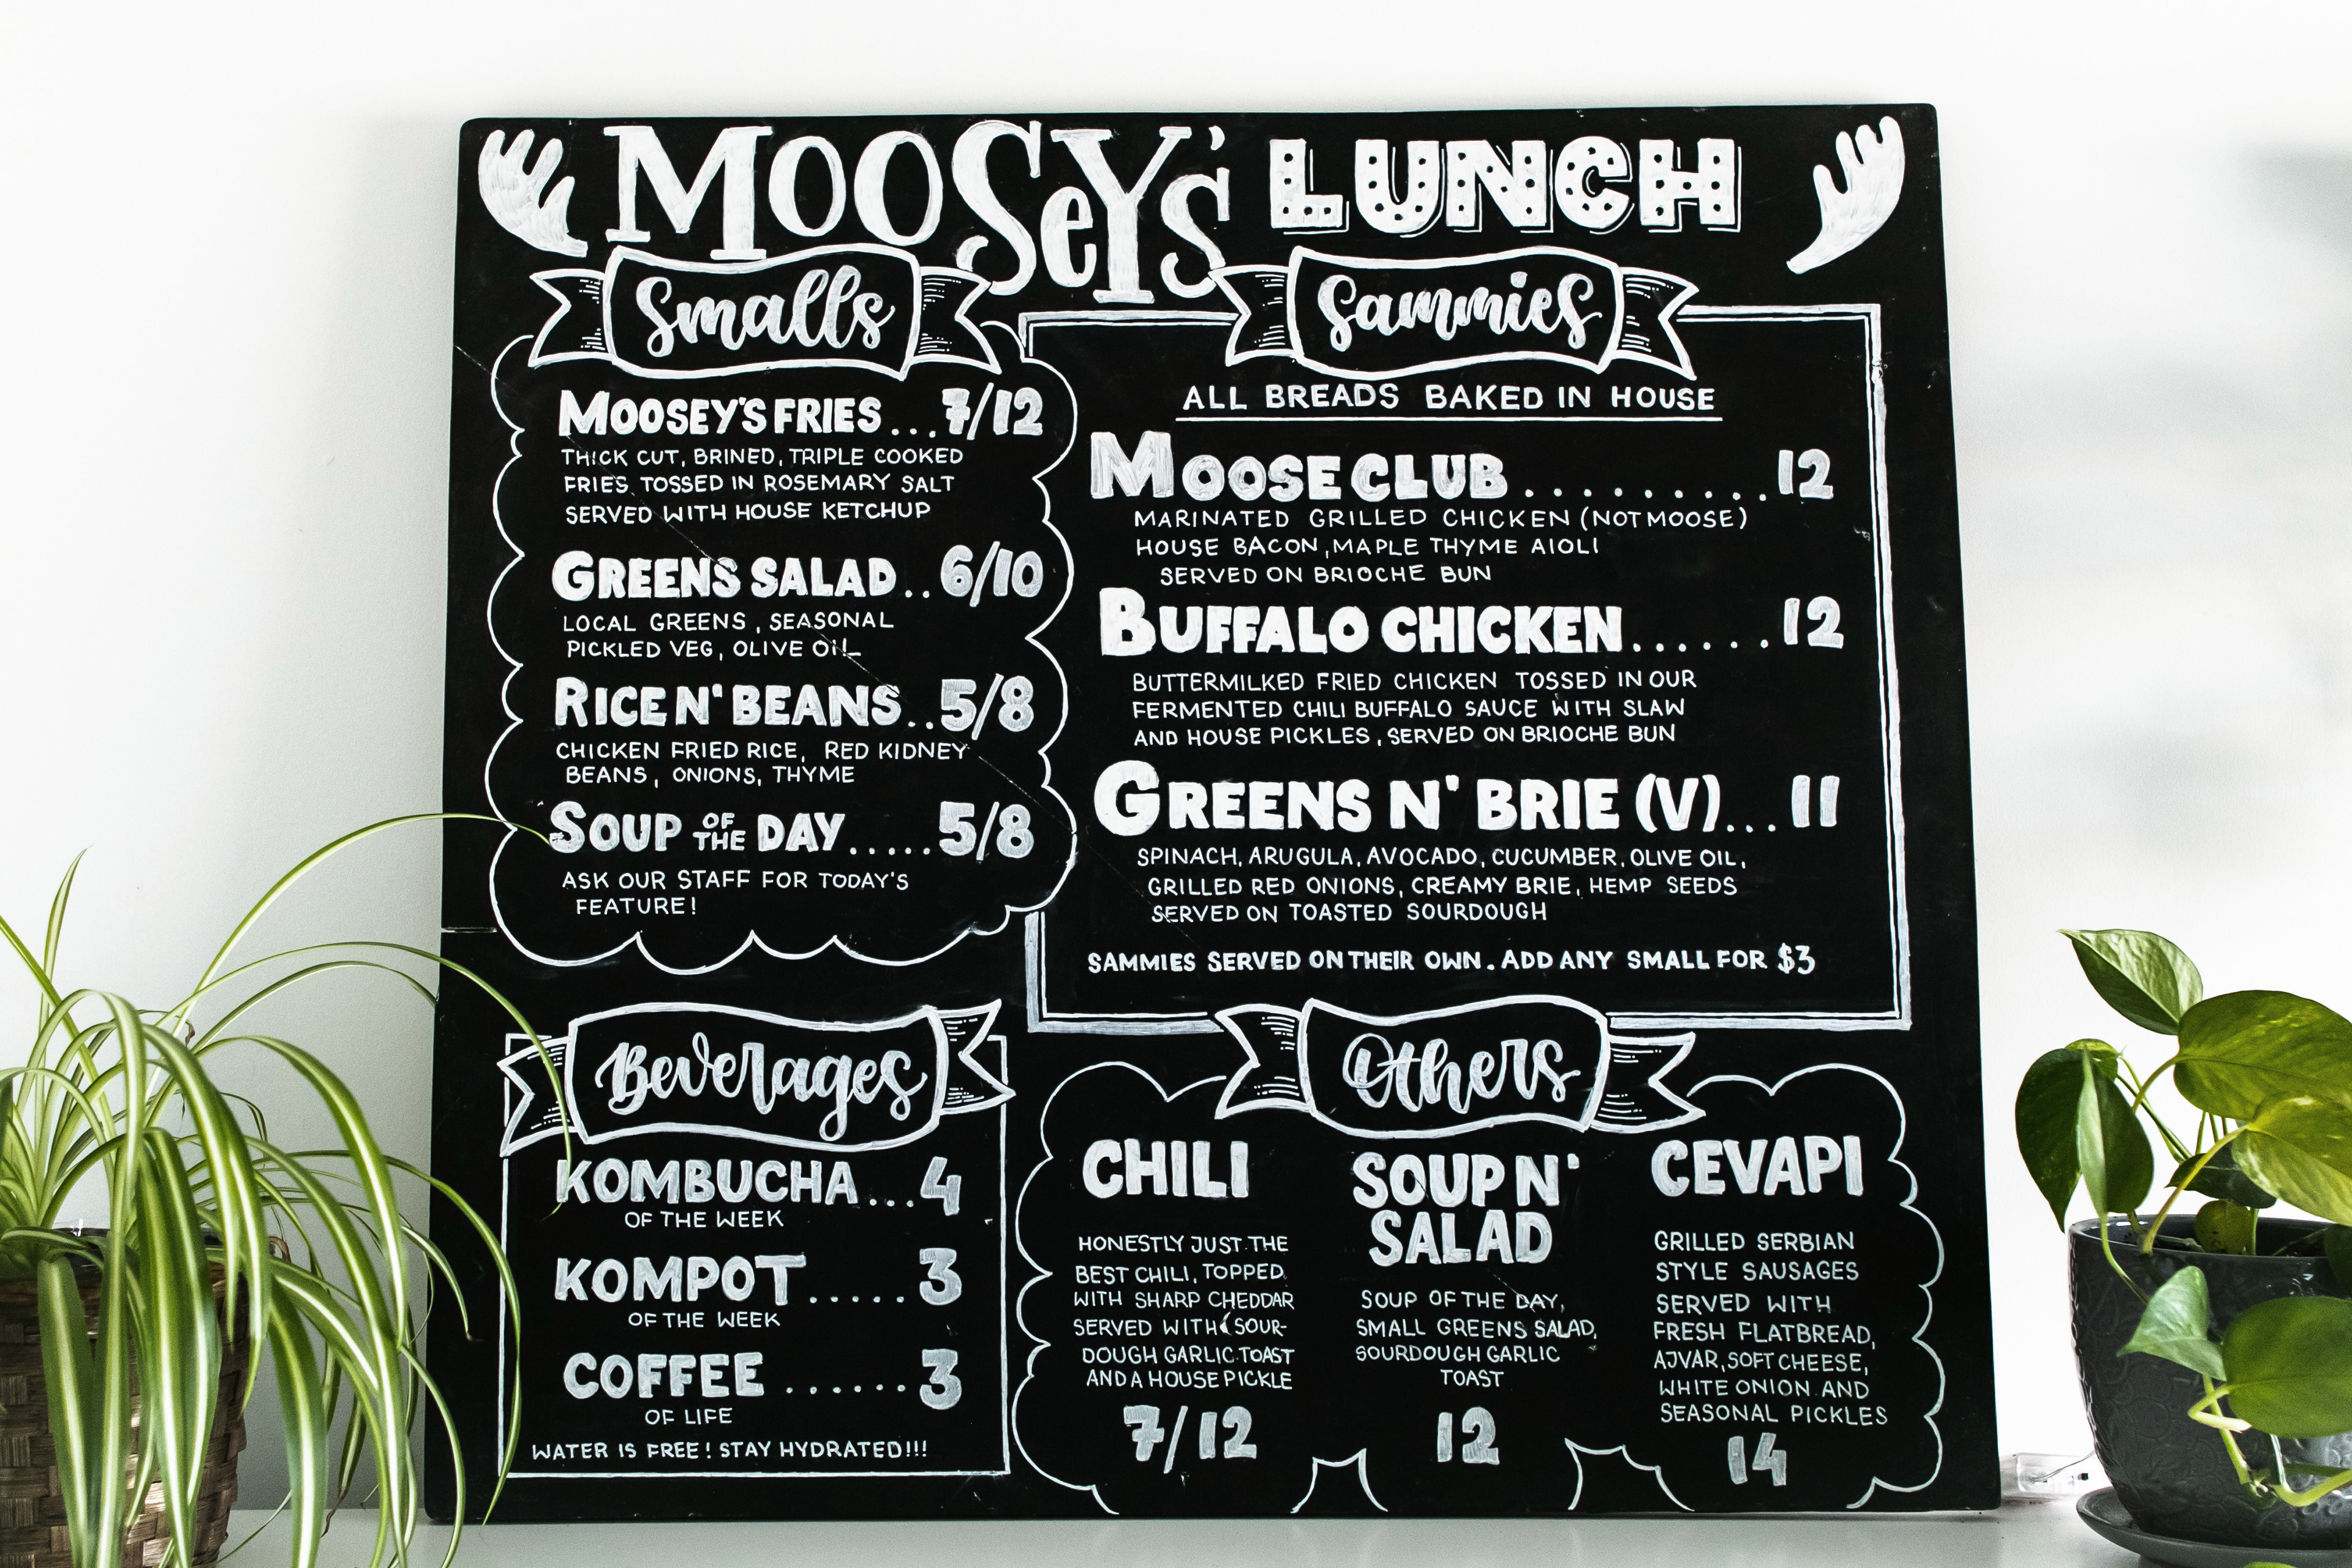 MOOSEY'S LUNCH
Smalls
MOOSEY'S FRIES...7/12
THICK CUT, BRINED, TRIPLE COOKED
FRIES TOSSED IN ROSEMARY SALT
SERVED WITH HOUSE KETCHUP
GREENS SALAD..6/10
LOCAL GREENS, SEASONAL
PICKLED VEG, OLIVE OIL
RICE N' BEANS..5/8
CHICKEN FRIED RICE, RED KIDNEY
BEANS, ONIONS, THYME
SOUP OF THE DAY.....5/8
ASK OUR STAFF FOR TODAY'S
FEATURE!
Sammies
ALL BREADS BAKED IN HOUSE
MOOSE CLUB..........12
MARINATED GRILLED CHICKEN (NOT MOOSE)
HOUSE BACON, MAPLE THYME AIOLI
SERVED ON BRIOCHE BUN
BUFFALO CHICKEN......12
BUTTERMILKED FRIED CHICKEN TOSSED IN OUR
FERMENTED CHILI BUFFALO SAUCE WITH SLAW
AND HOUSE PICKLES, SERVED ON BRIOCHE BUN
GREENS N' BRIE (V)...11
SPINACH, ARUGULA, AVOCADO, CUCUMBER, OLIVE OIL,
GRILLED RED ONIONS, CREAMY BRIE, HEMP SEEDS
SERVED ON TOASTED SOURDOUGH
SAMMIES SERVED ON THEIR OWN. ADD ANY SMALL FOR $3
Beverages
KOMBUCHA...4
OF THE WEEK
KOMPOT.....3
OF THE WEEK
COFFEE......3
OF LIFE
WATER IS FREE! STAY HYDRATED!!!
Others
CHILI
HONESTLY JUST THE
BEST CHILI, TOPPED
WITH SHARP CHEDDAR
SERVED WITH SOUR-
DOUGH GARLIC TOAST
AND A HOUSE PICKLE
7/12
SOUP N'
SALAD
SOUP OF THE DAY,
SMALL GREENS SALAD,
SOURDOUGH GARLIC
TOAST
12
CEVAPI
GRILLED SERBIAN
STYLE SAUSAGES
SERVED WITH
FRESH FLATBREAD,
AJVAR, SOFT CHEESE,
WHITE ONION AND
SEASONAL PICKLES
14